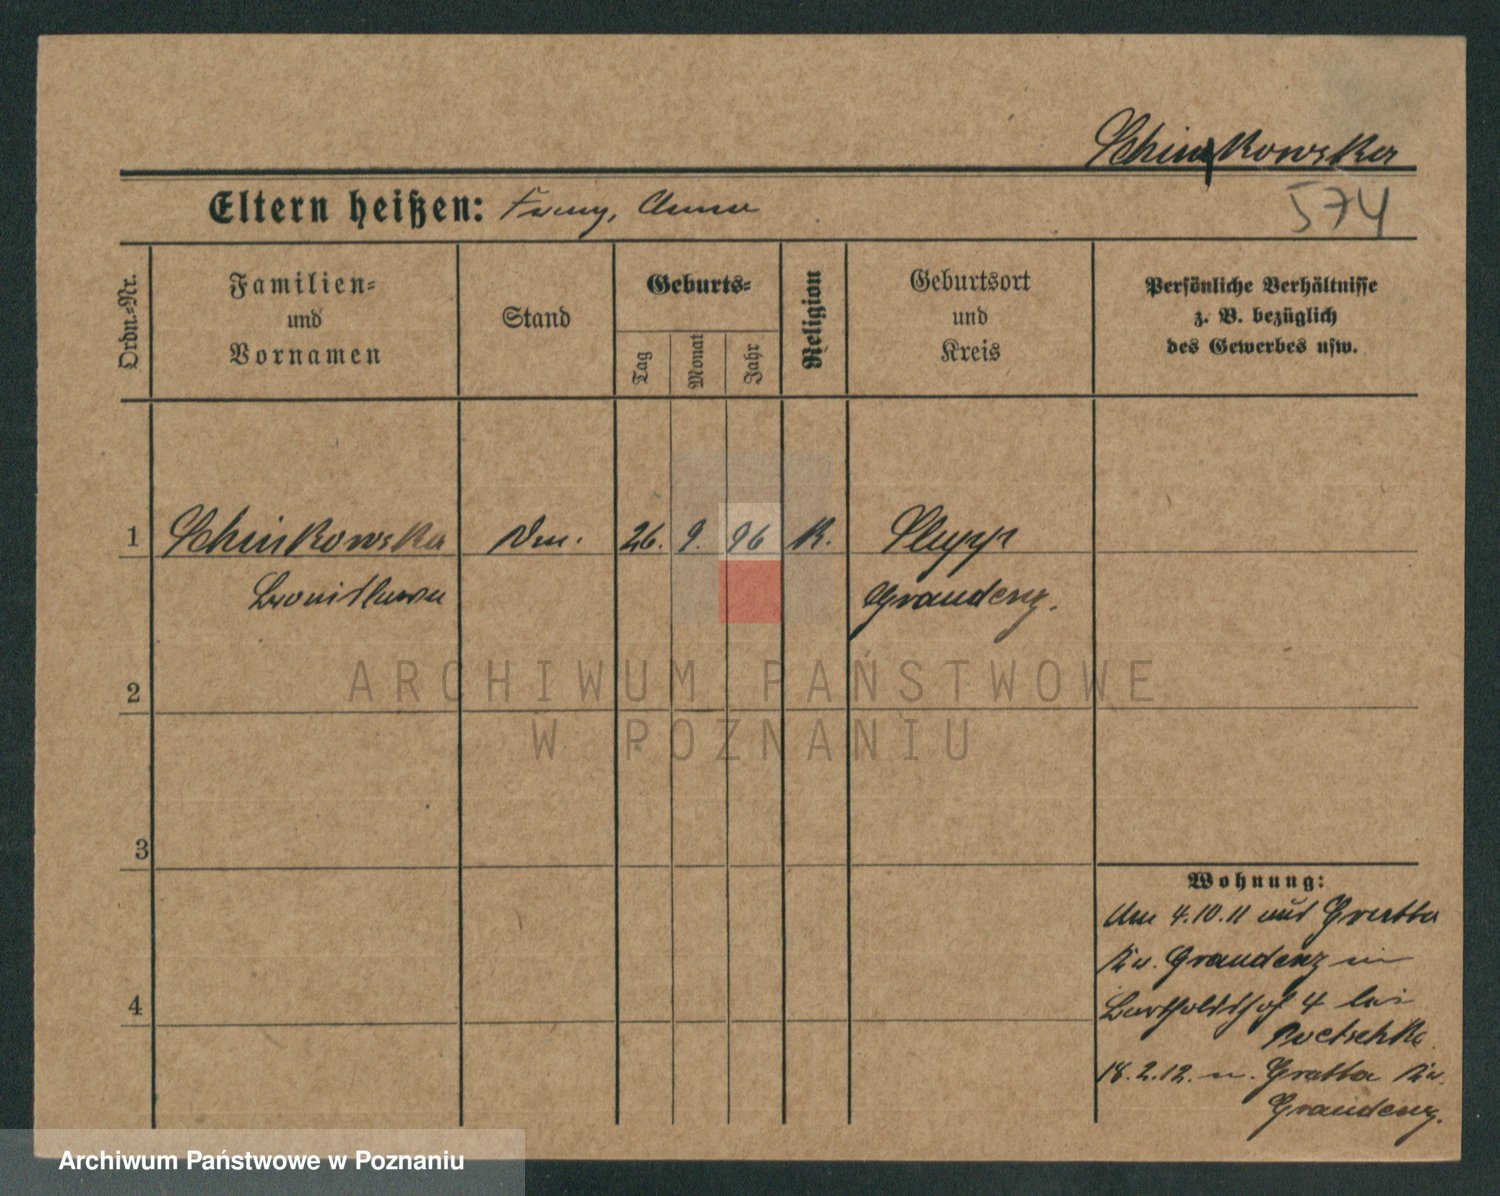 Schinkowska
574
Eltern heißen: Franz, Anna
Ordn.-Nr.
Familien-
und
Vornamen
Stand
Geburts-
Tag
Monat
Jahr
Religion
Geburtsort
und
Kreis
Persönliche Verhältnisse
z. B. bezüglich
des Gewerbes usw.
1 Schinkowska 26. 9. 96 K. Slupp
Bronislawa Graudenz.
ARCHIWUM PAŃSTWOWE
W POZNANIU
2
3
4
Wohnung:
Am 4.10.11 aus Gratta
Kr. Graudenz in
Bartholdshof 4 bei
18.2.12. n. Gratta Kr.
Graudenz.
Archiwum Państwowe w Poznaniu